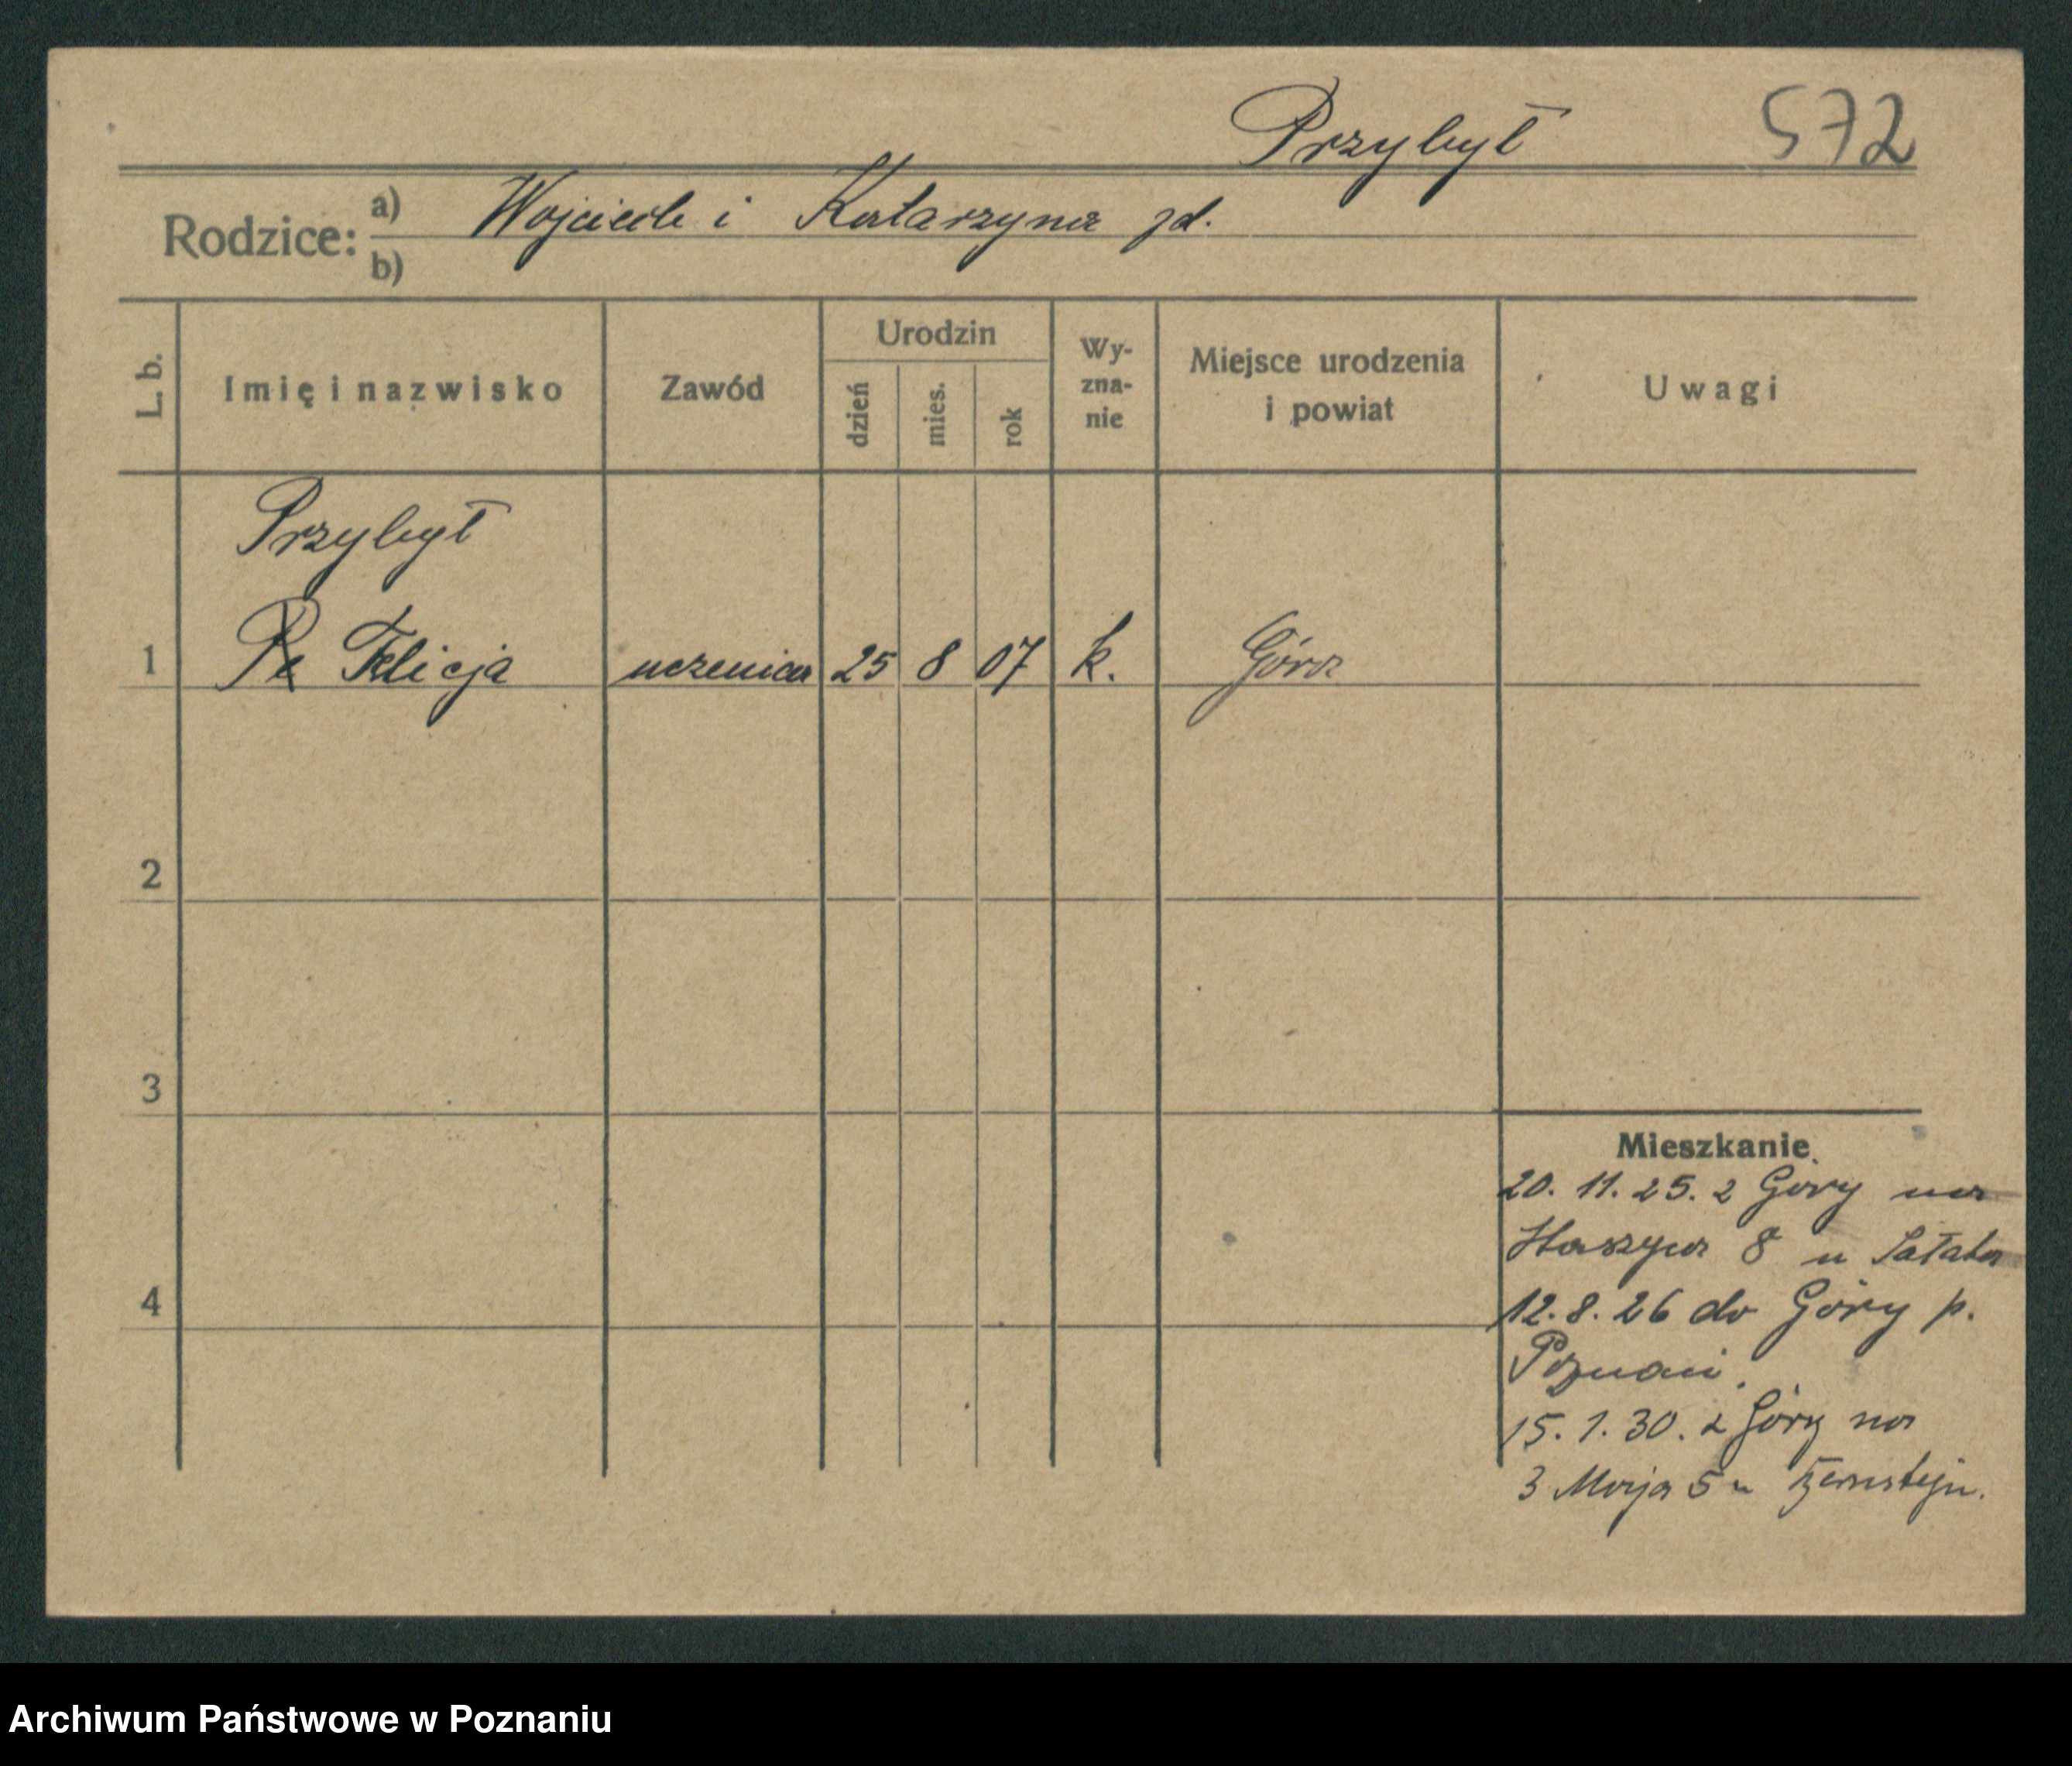 Przybył 572
Rodzice: a) Wojciech i Katarzyna jd.
b)
L. b. Imię i nazwisko Zawód Urodzin dzień mies. rok Wy-zna-nie Miejsce urodzenia i powiat Uwagi
Przybył
1 Felicja uczenica 25 8 07 k. Góra
2
3
Mieszkanie
20. 11. 25. z Góry na
8 u Sałata
4
12. 8. 26 do Góry p.
Poznań
15. 1. 30. z Góry na
3 Maja 5 u
Archiwum Państwowe w Poznaniu